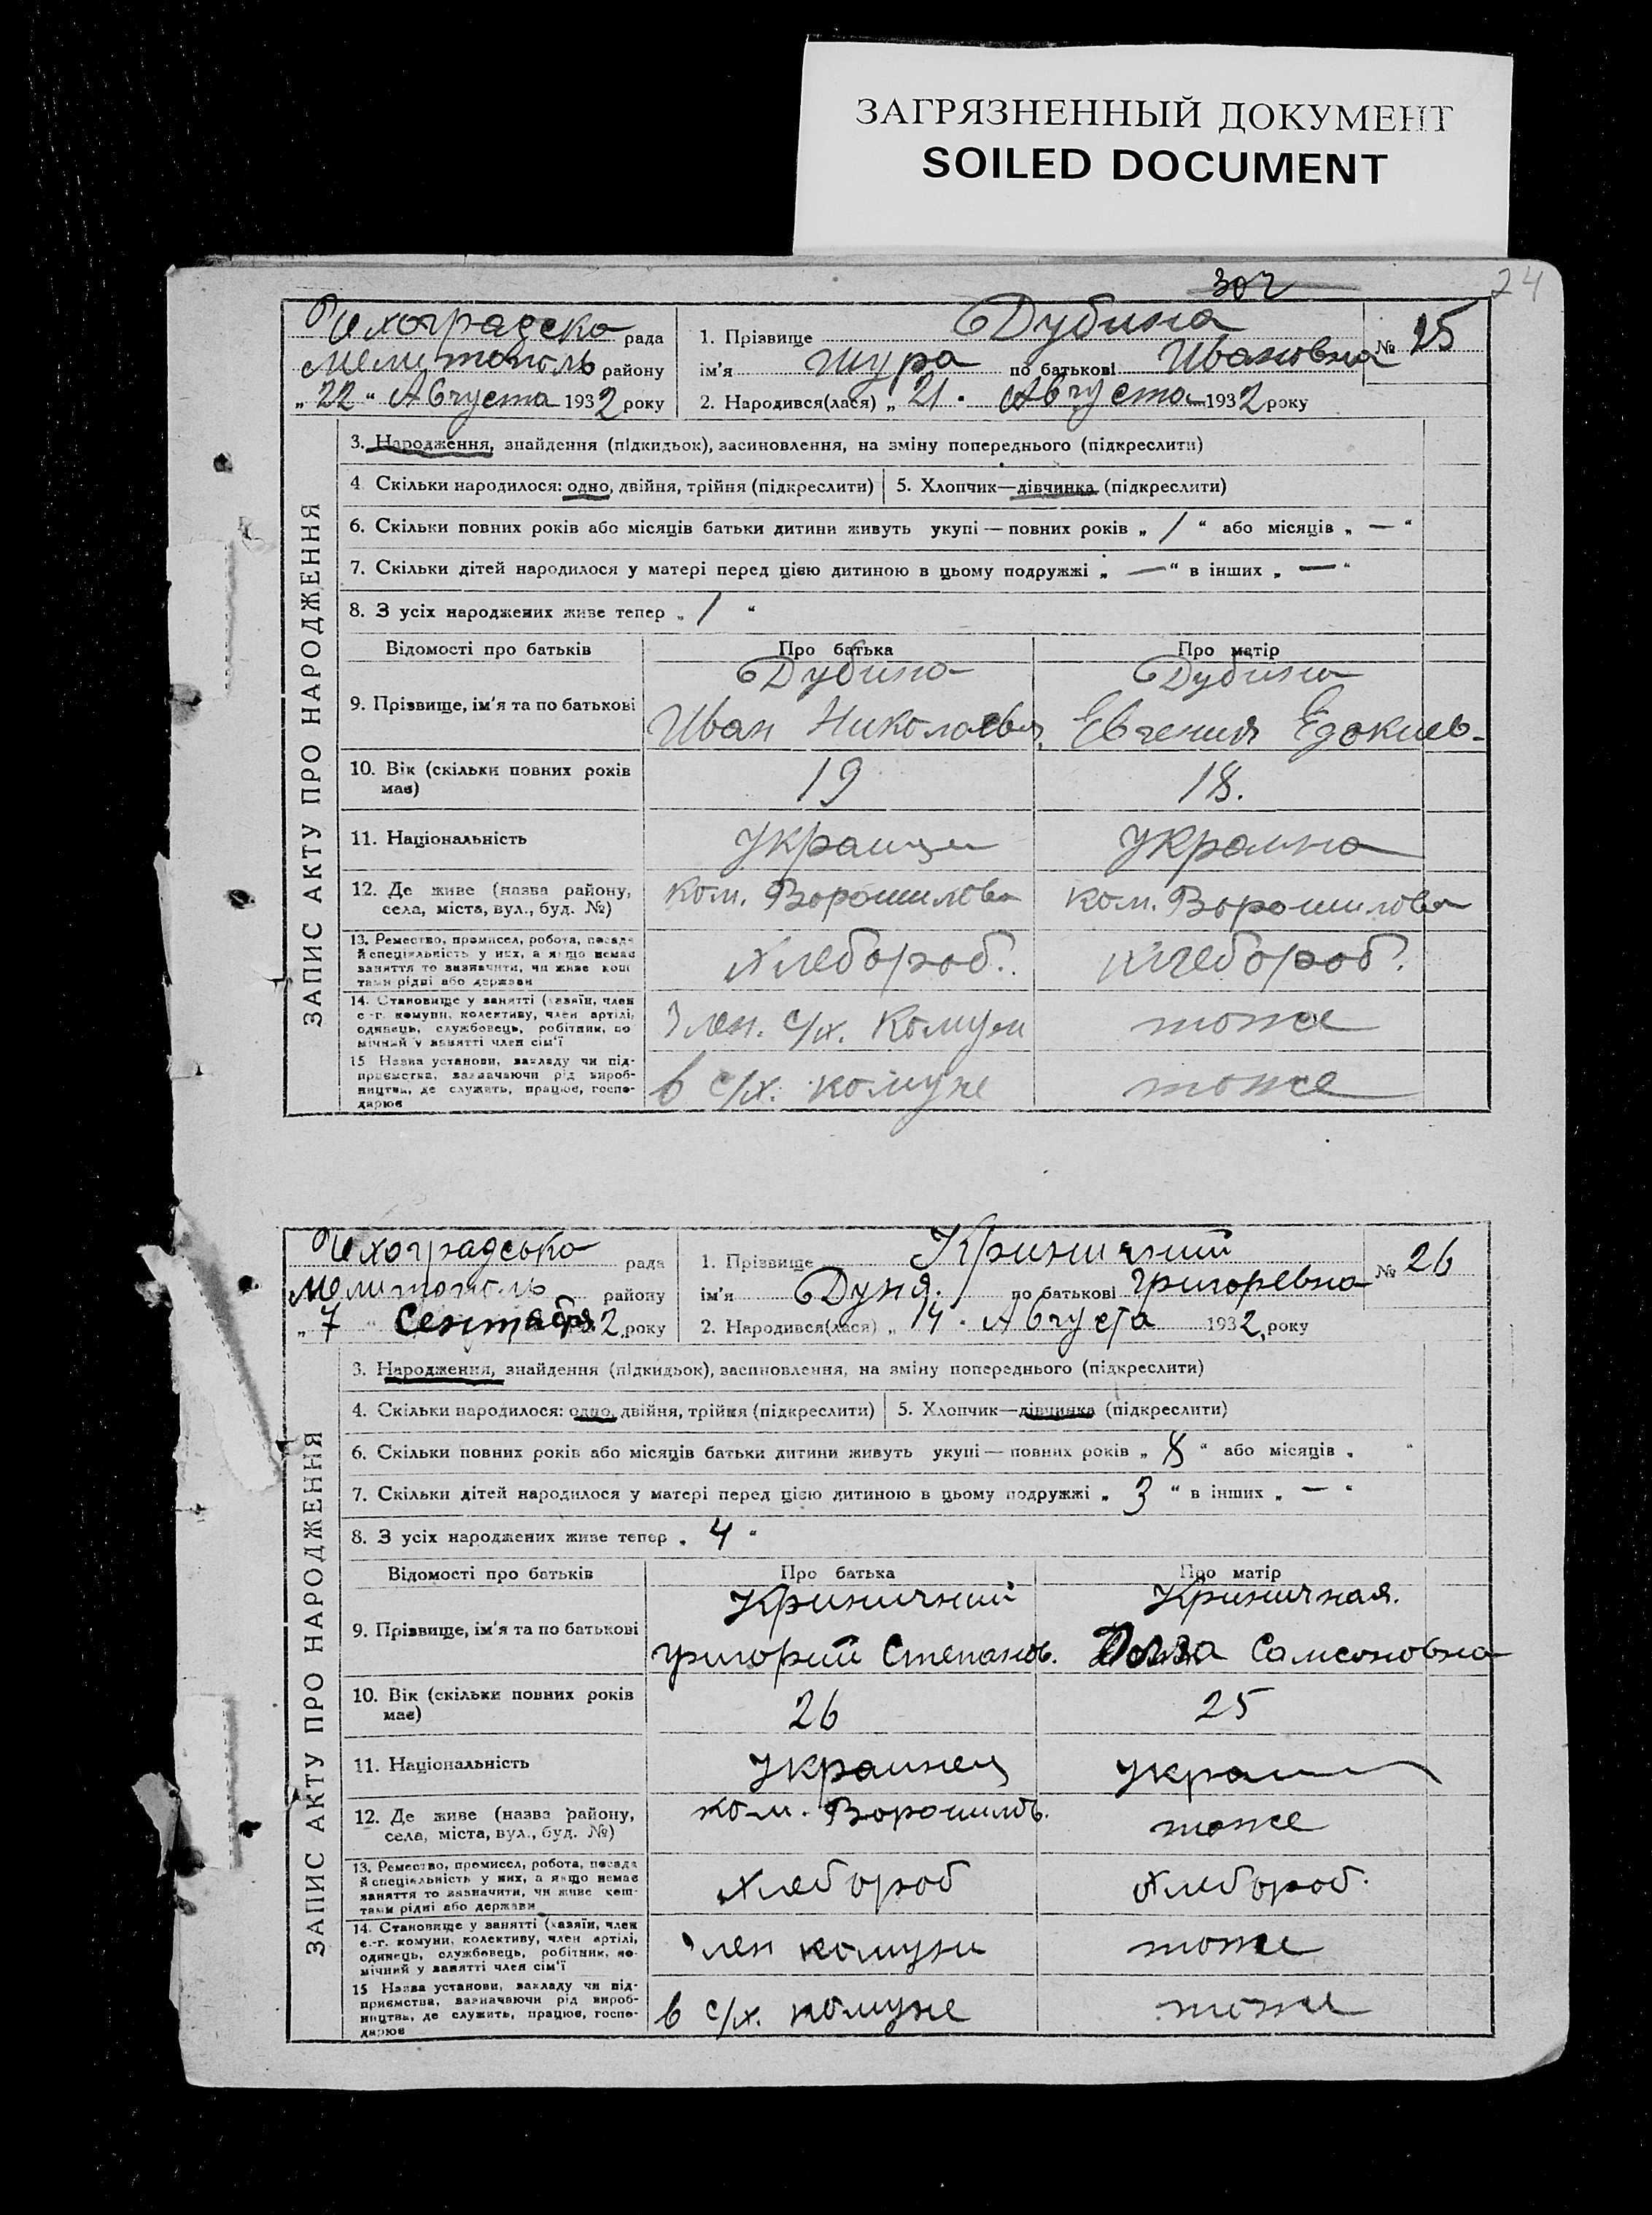 ЗАГРЯЗНЕННЫЙ ДОКУМЕНТ
SOILED DOCUMENT
302
24
Чехоградска рада
Мелитополь району
„ 22 “ Августа 1932 року
1. Прізвище Дубина
ім'я Шура по батькові Ивановна
№ 25
2. Народився(лася) „ 21 . Августа 1932 року
ЗАПИС АКТУ ПРО НАРОДЖЕННЯ
3. Народження, знайдення (підкидьок), засиновлення, на зміну попереднього (підкреслити)
4. Скільки народилося: одно, двійня, трійня (підкреслити) 5. Хлопчик—дівчинка (підкреслити)
6. Скільки повних років або місяців батьки дитини живуть укупі — повних років „ 1 “ або місяців „ — “
7. Скільки дітей народилося у матері перед цією дитиною в цьому подружжі „ — “ в інших „ — “
8. З усіх народжених живе тепер „ 1 “
Відомості про батьків Про батька Про матір
9. Прізвище, ім'я та по батькові
Дубина Дубина
Иван Николаевич Евгения Едоким-
10. Вік (скільки повних років має) 19 18.
11. Національність Украинц Украинка
12. Де живе (назва району, села, міста, вул., буд. №) ком. Ворошилова ком. Ворошилова
13. Ремество, промисел, робота, посада
й спеціяльність у них, а якщо немає
заняття то визначити, чи живе кош
тами рідні або держави
хлебороб. хлебороб.
14. Становище у занятті (хазяїн, член
с.-г. комуни, колективу, член артілі,
одинець, службовець, робітник, по
мічний у занятті член сім'ї
Член. с/х. Комуни тоже
15 Назва установи, закладу чи під-
приємства, зазначаючи рід вироб-
ництва, де служить, працює, госпо-
дарює
в с/х. комуне тоже
Чехоградсько рада
Мелитополь району
„ 7 “ Сентября 32 року
1. Прізвище Криничний
ім'я Дуня. по батькові Григоревна
№ 26
2. Народився(лася) „ 14 . Августа 1932, року
ЗАПИС АКТУ ПРО НАРОДЖЕННЯ
3. Народження, знайдення (підкидьок), засиновлення, на зміну попереднього (підкреслити)
4. Скільки народилося: одно, двійня, трійня (підкреслити) 5. Хлопчик—дівчинка (підкреслити)
6. Скільки повних років або місяців батьки дитини живуть укупі — повних років „ 8 “ або місяців „ “
7. Скільки дітей народилося у матері перед цією дитиною в цьому подружжі „ 3 “ в інших „ — “
8. З усіх народжених живе тепер „ 4 “
Відомості про батьків Про батька Про матір
9. Прізвище, ім'я та по батькові
Криничний Криничная.
Григорий Степанов. Самсоновна
10. Вік (скільки повних років має) 26 25
11. Національність Украинец Украин
12. Де живе (назва району, села, міста, вул., буд. №) ком. Ворошилов. тоже
13. Ремество, промисел, робота, посада
й спеціяльність у них, а якщо немає
заняття то зазначити, чи живе кош-
тами рідні або держави
хлебороб хлебороб.
14. Становище у занятті (хазяїн, член
с.-г. комуни, колективу, член артілі,
одинець, службовець, робітник, по-
мічний у занятті член сім'ї
Член комуни тоже
15 Назва установи, закладу чи під-
приємства, зазначаючи рід вироб-
ництва, де служить, працює, госпо-
дарює
в с/х. комуне тоже